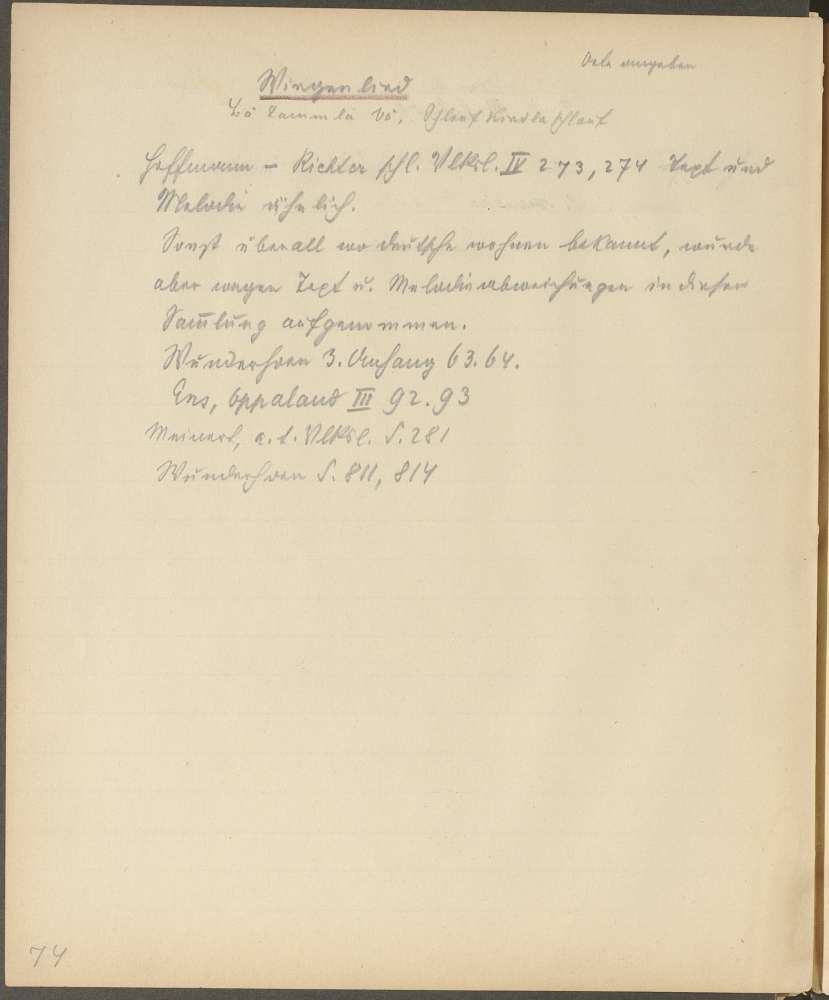 Orte angeben
Wiegenlied
Bä Lammla bä, Schlaf Kindla schlaf
Hoffmann – Richter schl. Vlksl. IV 273, 274 Text und
Melodie ähnlich.
Sonst überall wo deutsche wohnen bekannt, wurde
aber wegen Text u. Melodieabweichungen in diese
Sam̅lung aufgenommen.
Wunderhorn 3. Anhang 63. 64.
Ens, Oppaland III 92. 93
Meinert, a. t. Vlksl. S. 281
Wunderhorn S. 811, 814
74